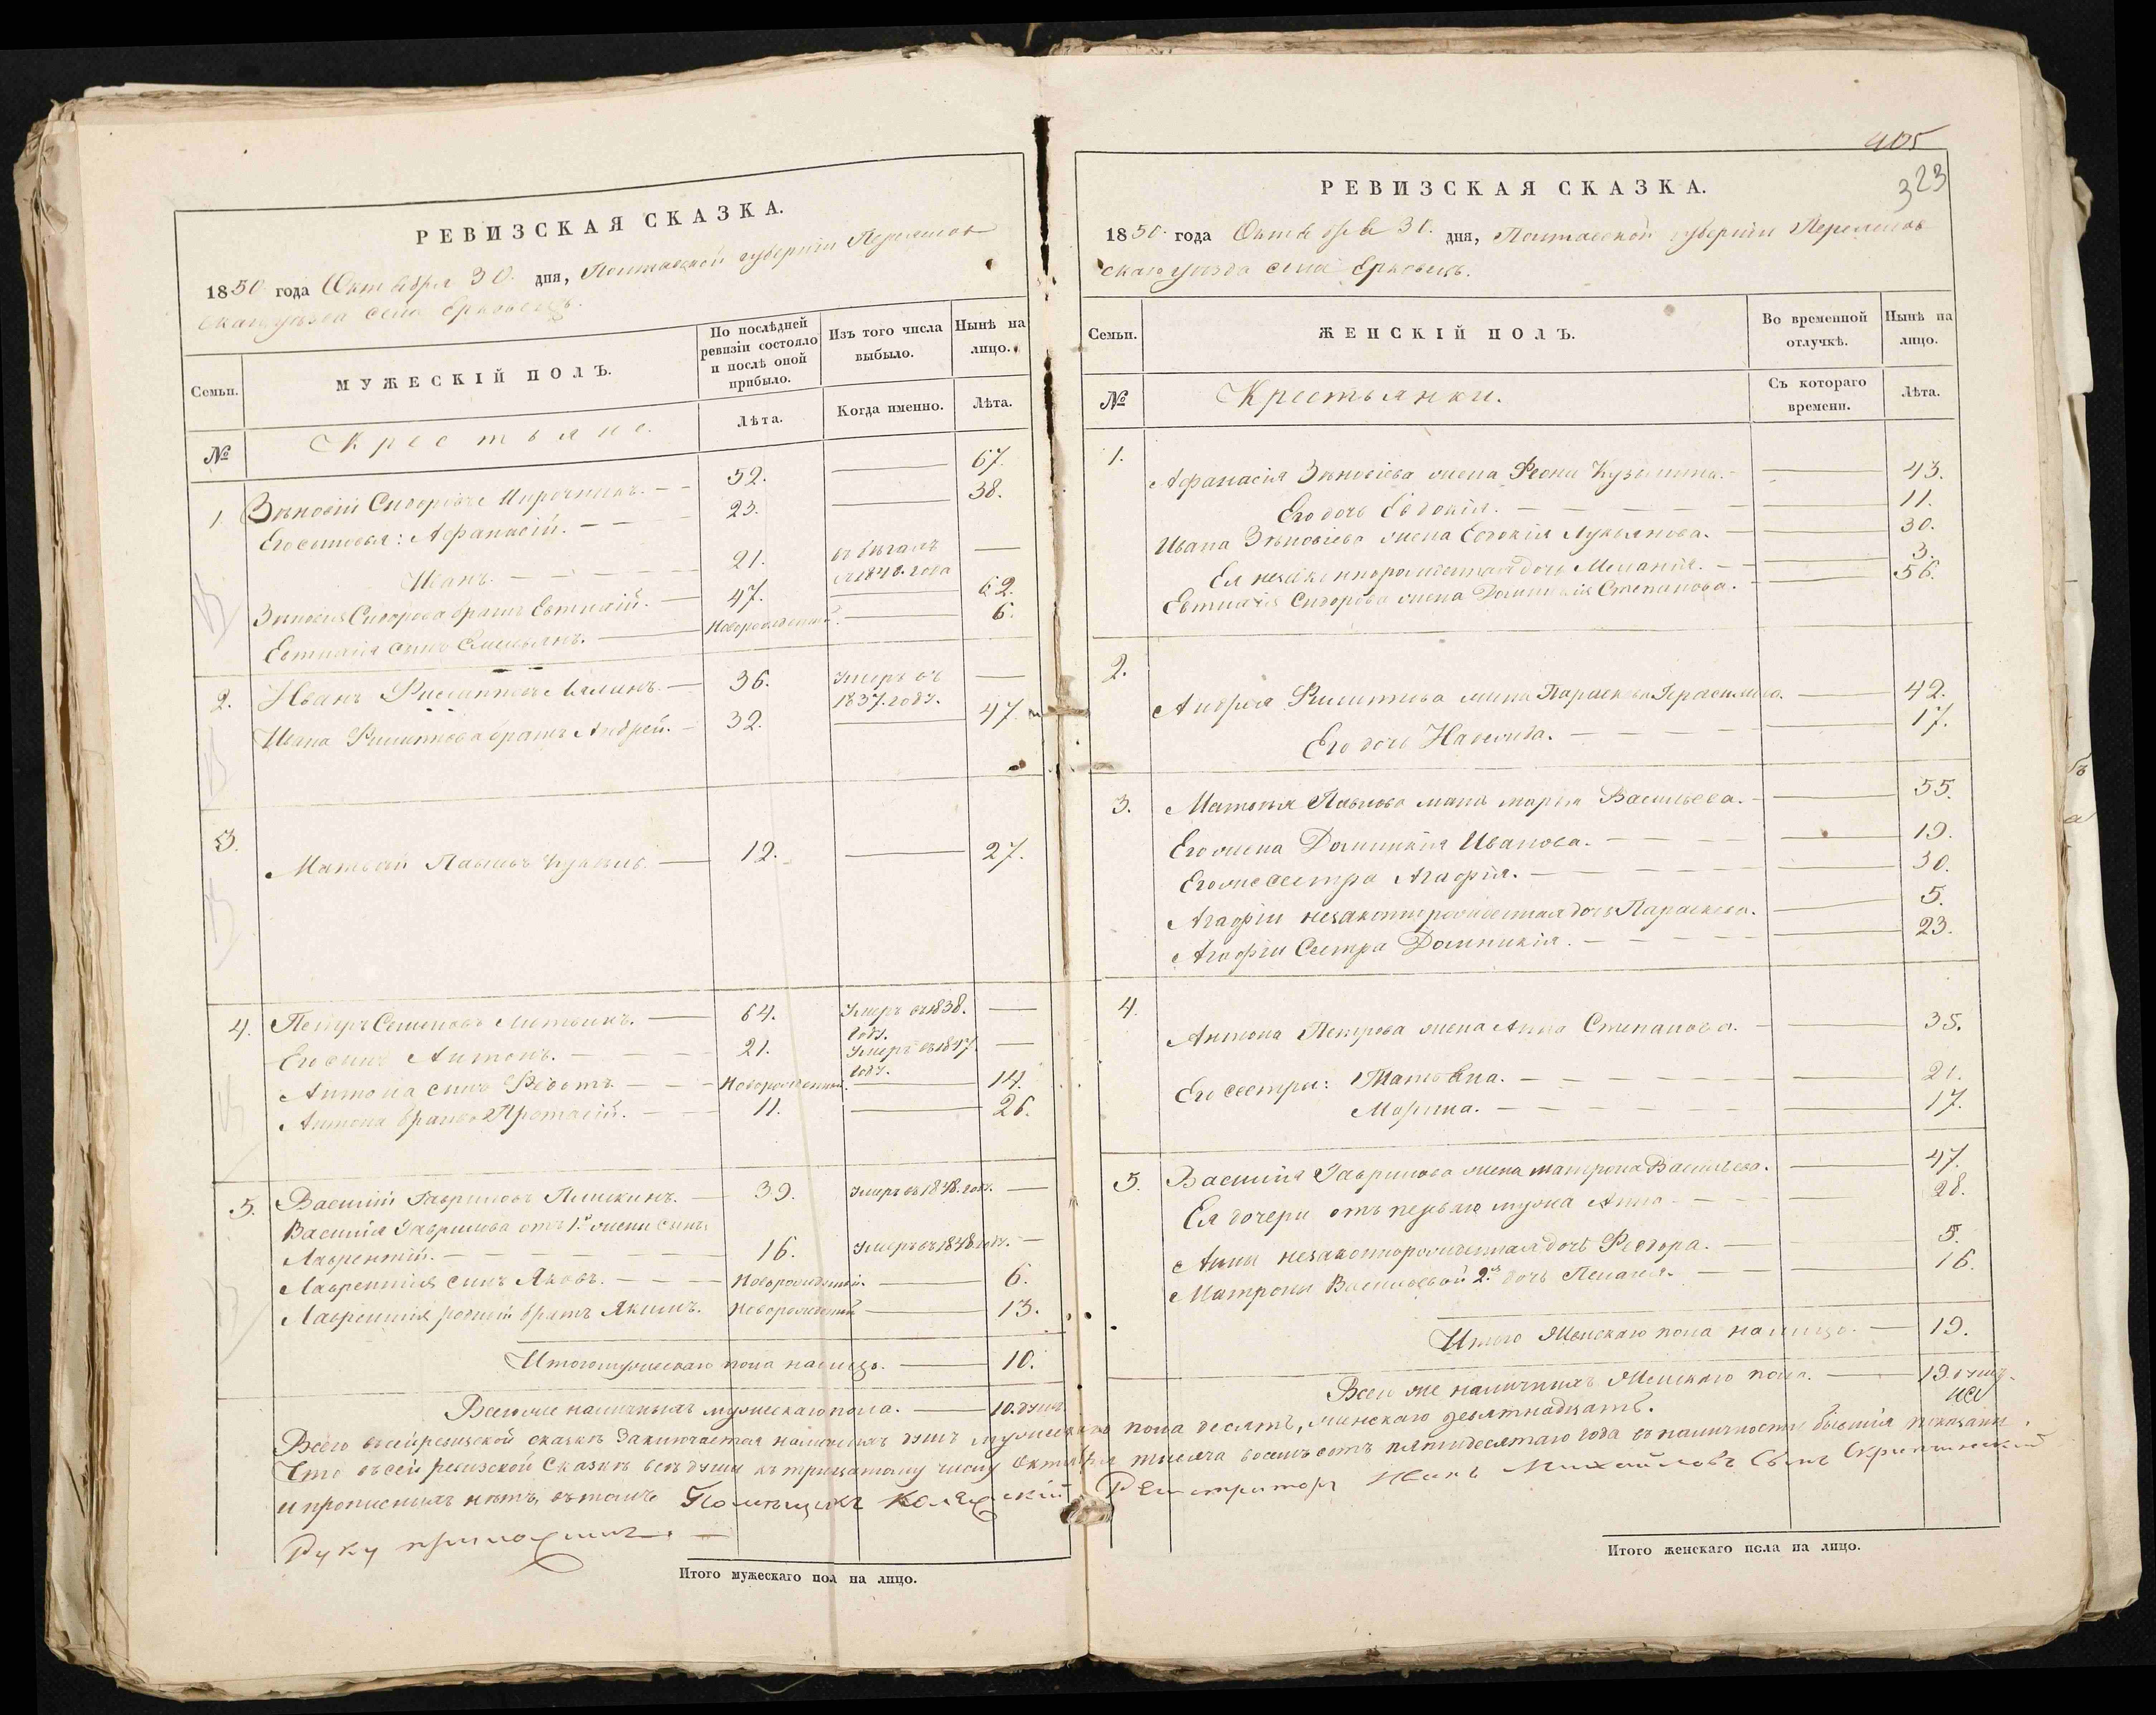 РЕВИЗСКАЯ СКАЗКА.
1850 года Октября 30. дня, Полтавской губерніи Переяслов
скаго уѣзда села Ерковецъ.
Семьи.
МУЖЕСКІЙ ПОЛЪ.
По послѣдней ревизіи состояло и послѣ оной прибыло.
Изъ того числа выбыло.
Нынѣ на лицо.
№
Крестьяне.
Лѣта.
Когда именно.
Лѣта.
1. Зѣновій Сидоровъ Мирочникъ. 52. 67.
Его сыновья: Афанасій. 23. 38.
Иванъ. 21. въ бѣгахъ
съ 1848. года
Зѣновія Сидорова братъ Евтихій. 47. 62.
Евтихія сынъ Емельянъ. Новорожденный. 6.
2. Иванъ Филиповъ 36. Умеръ въ
1837. году.
Ивана Филипова братъ Андрей. 32. 47.
3.
Матвѣй Павловъ 12. 27.
4. Петръ Семеновъ 64. Умеръ въ 1838.
году.
Его сынъ Антонъ. 21. Умеръ въ 1847.
году.
Антона сынъ Федотъ. Новорожденный. 14.
Антона братъ Протасій. 11. 26.
5. Василій Гавриловъ Пышкинъ. 39. Умеръ въ 1848. году.
Василія Гаврилова отъ 1й жены сынъ
Лаврентій. 16. Умеръ въ 1848 году.
Лаврентія сынъ Яковъ. Новорожденный. 6.
Лаврентія родной братъ Якимъ. Новорожденный 13.
Итого мужескаго пола налицо. 10.
Всего же наличныхъ мужескаго пола. 10. душъ
Итого мужескаго пол на лицо.
405
323
РЕВИЗСКАЯ СКАЗКА.
1850. года Октября 30. дня, Полтавской губерніи Переяслов
скаго уѣзда села Ерковецъ.
Семьи.
ЖЕНСКІЙ ПОЛЪ.
Во временной отлучкѣ.
Нынѣ на лицо.
№
Крестьянки.
Съ котораго времени.
Лѣта.
1.
Афанасія Зѣновіева жена Феона Кузьмина. 43.
Его дочь Евдокія. 11.
Ивана Зѣновіева жена Евдокія Лукьянова. 30.
Ея незаконнорожденная дочь Меланія. 3.
Евтихія Сидорова жена Домникія Степанова. 56.
2.
Андрея Филипова жена Параскева Герасимова. 42.
Его дочь Наталія. 17.
3. Матвѣя Павлова мать Марія Васильева. 55.
Его жена Домникія Иванова. 19.
Его же сестра Агафія. 30.
Агафіи незаконнорожденная дочь Параскева. 5.
Агафіи Сестра Домникія. 23.
4.
Антона Петрова жена Анна Степанова. 35.
Его сестры: Татьяна. 21.
Марина. 17.
5. Василія Гаврилова жена Матрона Васильева. 47.
Ея дочери отъ перваго мужа Анна 28.
Анны незаконнорожденная дочь Федора. 5.
Матроны Васильевой 2я дочь Пелагія. 16.
Итого Женскаго пола налицо. 19.
Всего же наличныхъ Женскаго пола. 19. душъ.
Всего въ сей ревизской сказкѣ Заключается наличныхъ душъ мужескаго пола десять, женскаго девятнадцать.
Что въ сей ревизской Сказкѣ всѣ души къ тридцатому числу Октября тысяча восемьсотъ пятидесятаго года въ наличности бывшія показаны
и прописныхъ нѣтъ, въ томъ Регистраторъ Иванъ Михайловъ Сынъ
Руку приложилъ.
Итого женскаго пола на лицо.